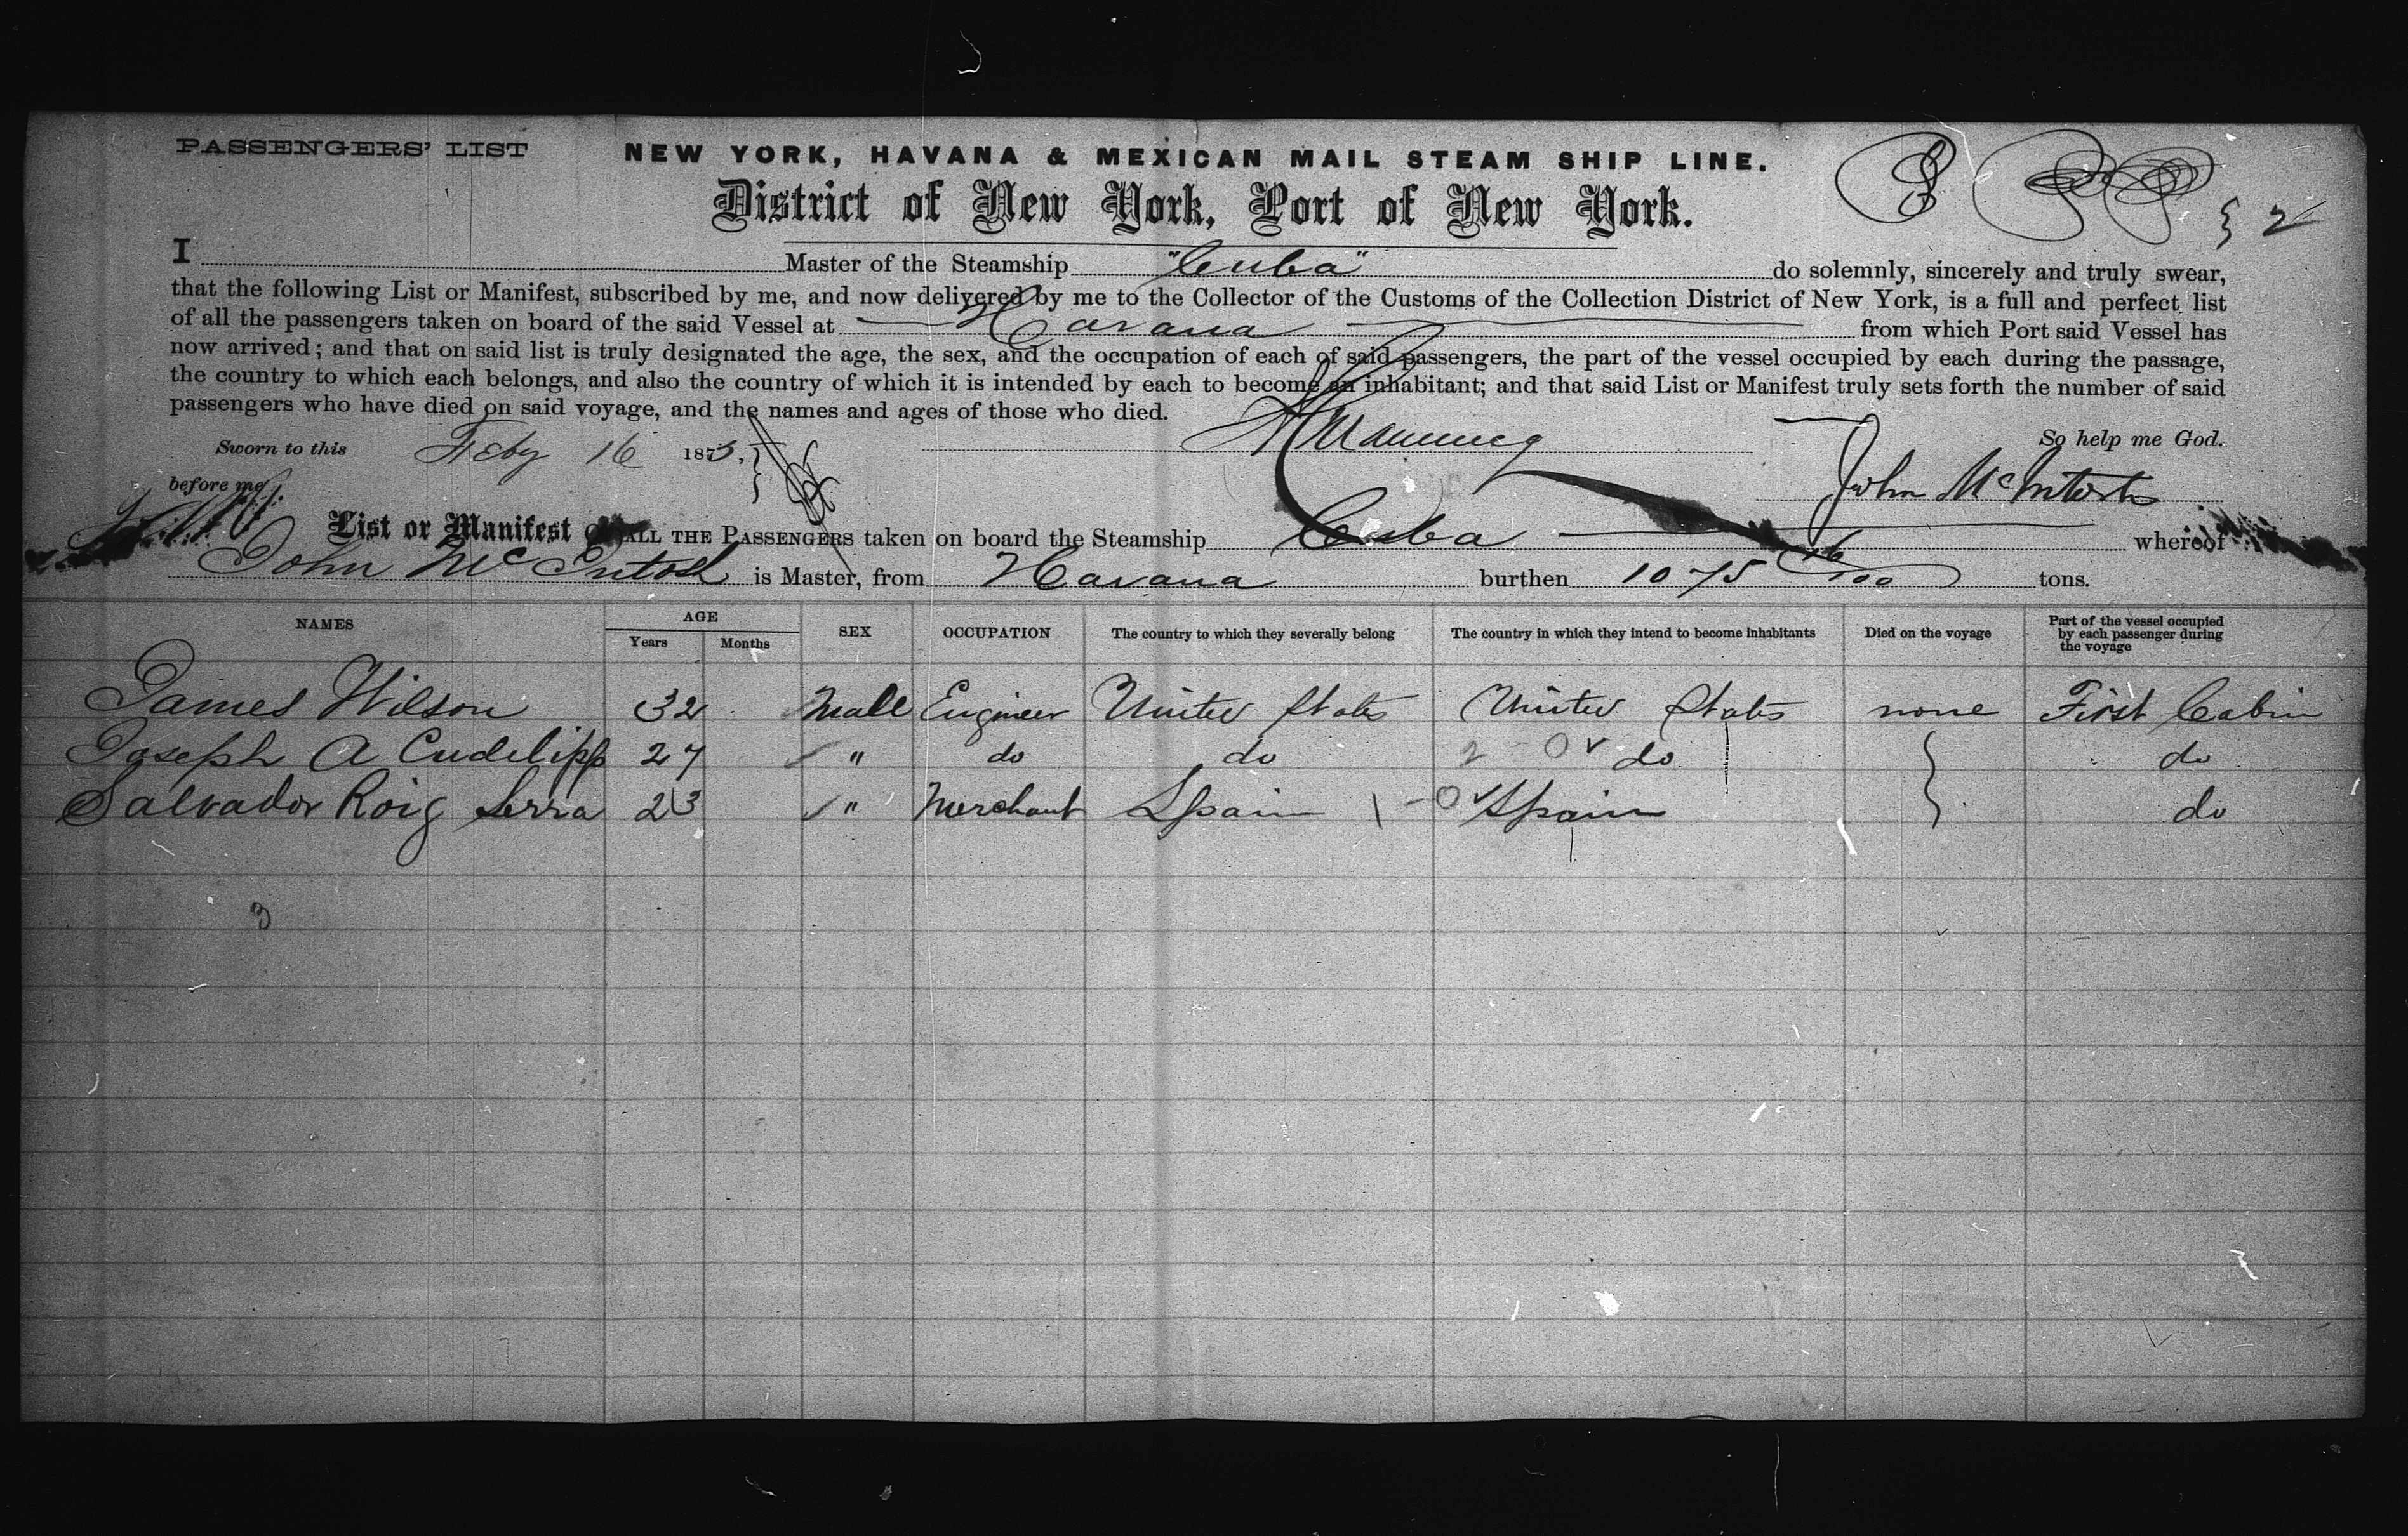 PASSENGERS' LIST
NEW YORK, HAVANA & MEXICAN MAIL STEAM SHIP LINE.
District of New York, Port of New York.
2
I Master of the Steamship "Cuba" do solemnly, sincerely and truly swear,
that the following List or Manifest, subscribed by me, and now delivered by me to the Collector of the Customs of the Collection District of New York, is a full and perfect list
of all the passengers taken on board of the said Vessel at Havana from which Port said Vessel has
now arrived; and that on said list is truly designated the age, the sex, and the occupation of each of said passengers, the part of the vessel occupied by each during the passage,
the country to which each belongs, and also the country of which it is intended by each to become an inhabitant; and that said List or Manifest truly sets forth the number of said
passengers who have died on said voyage, and the names and ages of those who died.
Sworn to this Feby 16 1873, So help me God.
before me John McIntosh
List or Manifest OF ALL THE PASSENGERS taken on board the Steamship Cuba whereof
John McIntosh is Master, from Havana burthen 1075 16/100 tons.
NAMES AGE Years Months SEX OCCUPATION The country to which they severally belong The country in which they intend to become inhabitants Died on the voyage Part of the vessel occupied by each passenger during the voyage
James Wilson 32 Male Engineer United States United States none First Cabin
Joseph A Cudlipp 27 " do do do do
Salvador Roig Serra 23 " Merchant Spain Spain do
3